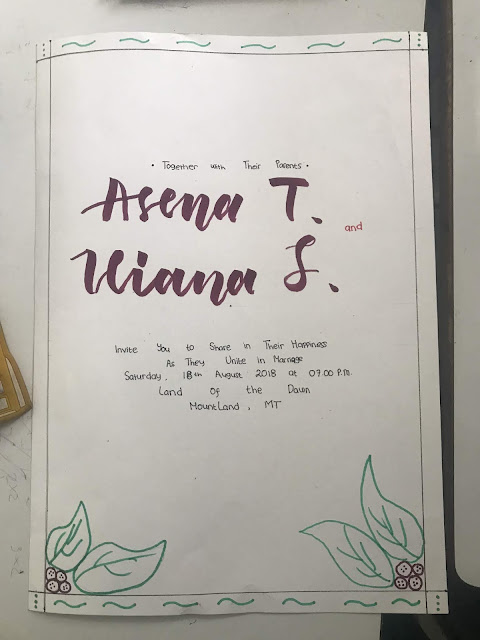 • Together with Their Parents •
Asena T.
and
Iliana S.
Invite You to Share in Their Happiness
As They Unite in Marriage
Saturday, 18th August 2018 at 07.00 P.M.
Land Of the Dawn
MountLand, MT